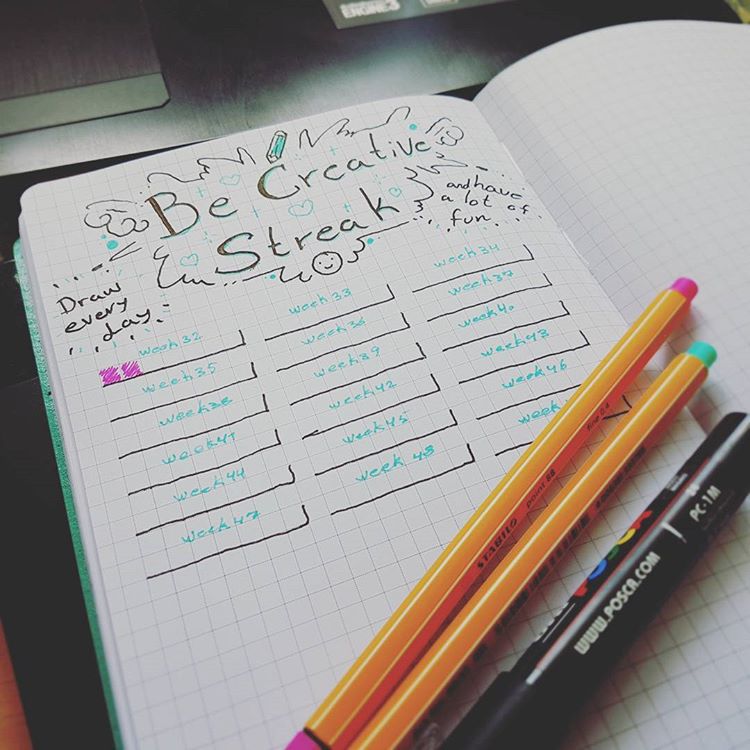 Be Creative
Streak
and have
a lot of
fun
Draw
every
day
week 32
week 33
week 34
week 35
week 36
week 37
week 38
week 39
week 40
week 41
week 42
week 43
week 44
week 45
week 46
week 47
week 48
week
STABILO point 88 fine 0,4
POSCA
WWW.POSCA.COM
PC-1M